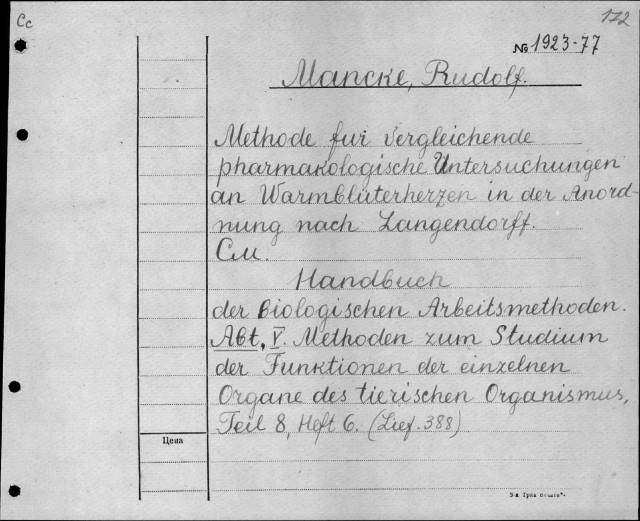 Cc
172
№ 1923-77
Mancke, Rudolf.
Methode fur vergleichende
pharmakologische Untersuchungen
an Warmblüterherzen in der Anord-
nung nach Langendorff.
См.
Handbuch
der biologischen Arbeitsmethoden.
Abt. V. Methoden zum Studium
der Funktionen der einzelnen
Organe des tierischen Organismus,
Teil 8, Heft 6. (Lief. 388)
Цена